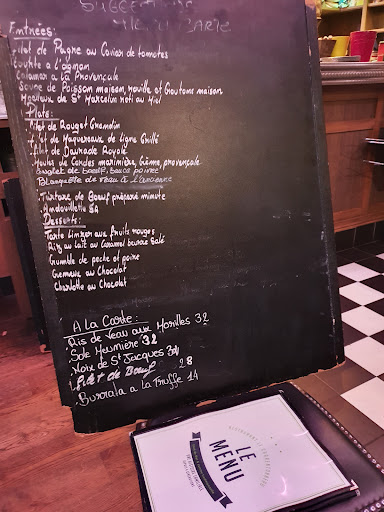 SUGGESTIONS
CARTE
Entrées:
Filet de Pagre au Caviar de tomates
Calamar a la Provençale
Soupe de Poisson maison, rouille et Croutons maison
Morceaux de St Marcelin roti au Miel
Plats:
Filet de Rouget Grondin
Filet de Maquereaux de ligne Grillé
Filet de Daurade Royale
Moules de Cordes marinière, Crème, provençale
Onglet de boeuf, sauce poivre
Blanquette de veau à l'ancienne
Tartare de Boeuf préparé minute
Andouillette 5A
Desserts:
Tarte Linzer aux fruits rouges
Riz au lait au Caramel beurre Salé
Crumble de peche et poire
Cremeux au Chocolat
Charlotte au Chocolat
A La Carte:
Ris de Veau aux Morilles 32
Sole Meunière 32
Noix de St Jacques
Filet de Boeuf 28
Burrata a La Truffe 14
LE
MENU